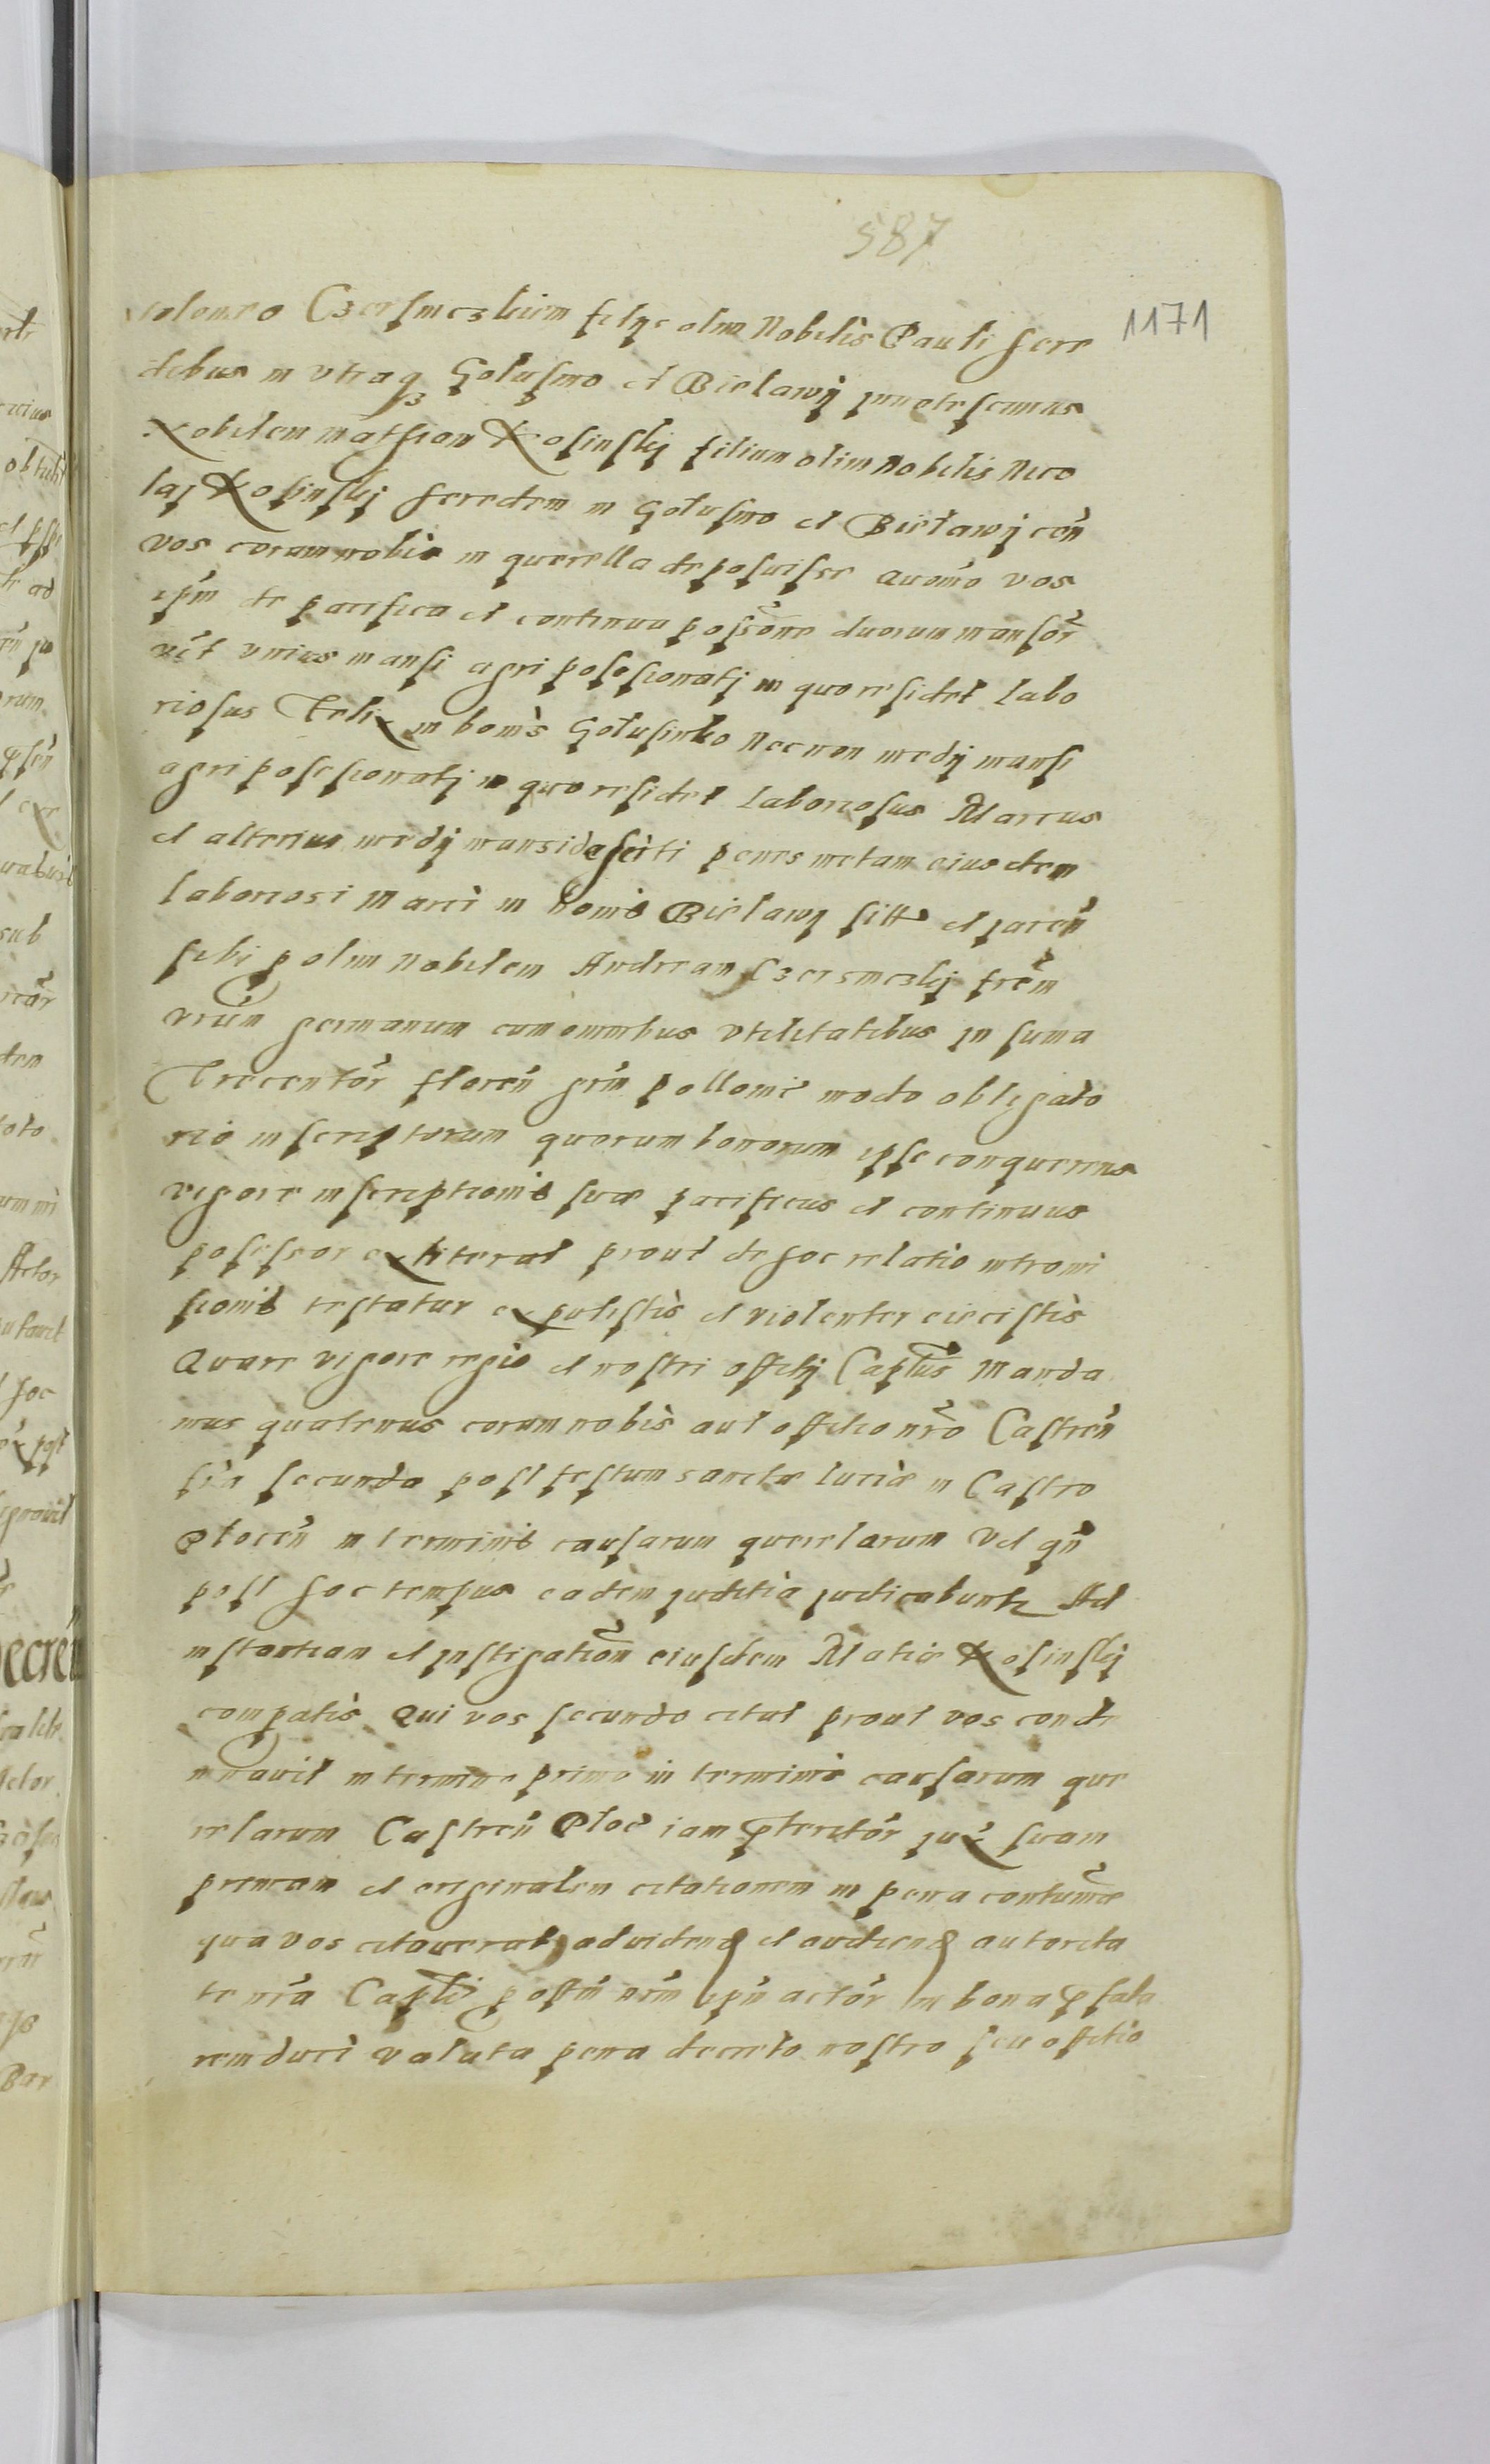 587
1171
tolomeo Czersmczkiem filys olim Nobilis Pauli here
dibus in vtraq3 Golusino et Bielawÿ innotescimus
Nobilem mathiam Kosinskÿ filium olim Nobilis Nico
laj Kosinskÿ heredem in Gołusino et Bielawÿ cōn
vos coram nobis in querella deposuisse quomō vos
ipm̄ de pacifica et continua possōne duorum mansōr
vīt unius mansi agri posesionatj in quo residet labo
riosus Felix in bonis Gołusinko Necnon medÿ mansi
agri posesionatj in quo residet laboriosus Marcus
et alterius medÿ mansi deserti penes metam eiusdem
laboriosi Marci in bonis Bielawÿ sitt et jacēn
sibi p olim Nobilem Andream Czersmczkÿ frēm
vrūm germanum cum omnibus vtilitatibus in suma
Trecentōr florēn grm̄ pollonic modo obligato
rio inscriptorum quorum bonorum ipse conquerens
vigore inscriptionis suæ pacificus et continuus
posessor extiterat prout de hoc relatio intromi
sionis testatur expulistis et violenter eiecistis
Quare vigore regio et nostri offitÿ Captus Manda
mus quatenus coram nobis aut offitio nrō Castrēn
fria secunda post festum sanctæ luciæ in Castro
Plocēn in terminis causarum querelarum vel qn̄
post hoc tempus eadem juditia judicabuntz Ad
instantiam et instigatiōn eiusdem Matiæ Kosinskÿ
comparatis Qui vos secundo citat prout vos conde
mnavit in termino primo in terminis causarum que
relarum Castrēn Ploc iam pteritōr jux suam
primam et originalem citationem in pena contumāe
qua vos citaverat ad videnđ et audienđ autorita
te nrā Capli p offm̄ nrm̄ ipn̄ actōr in bona psata
remduci valata pena decreto nostro seu offitio